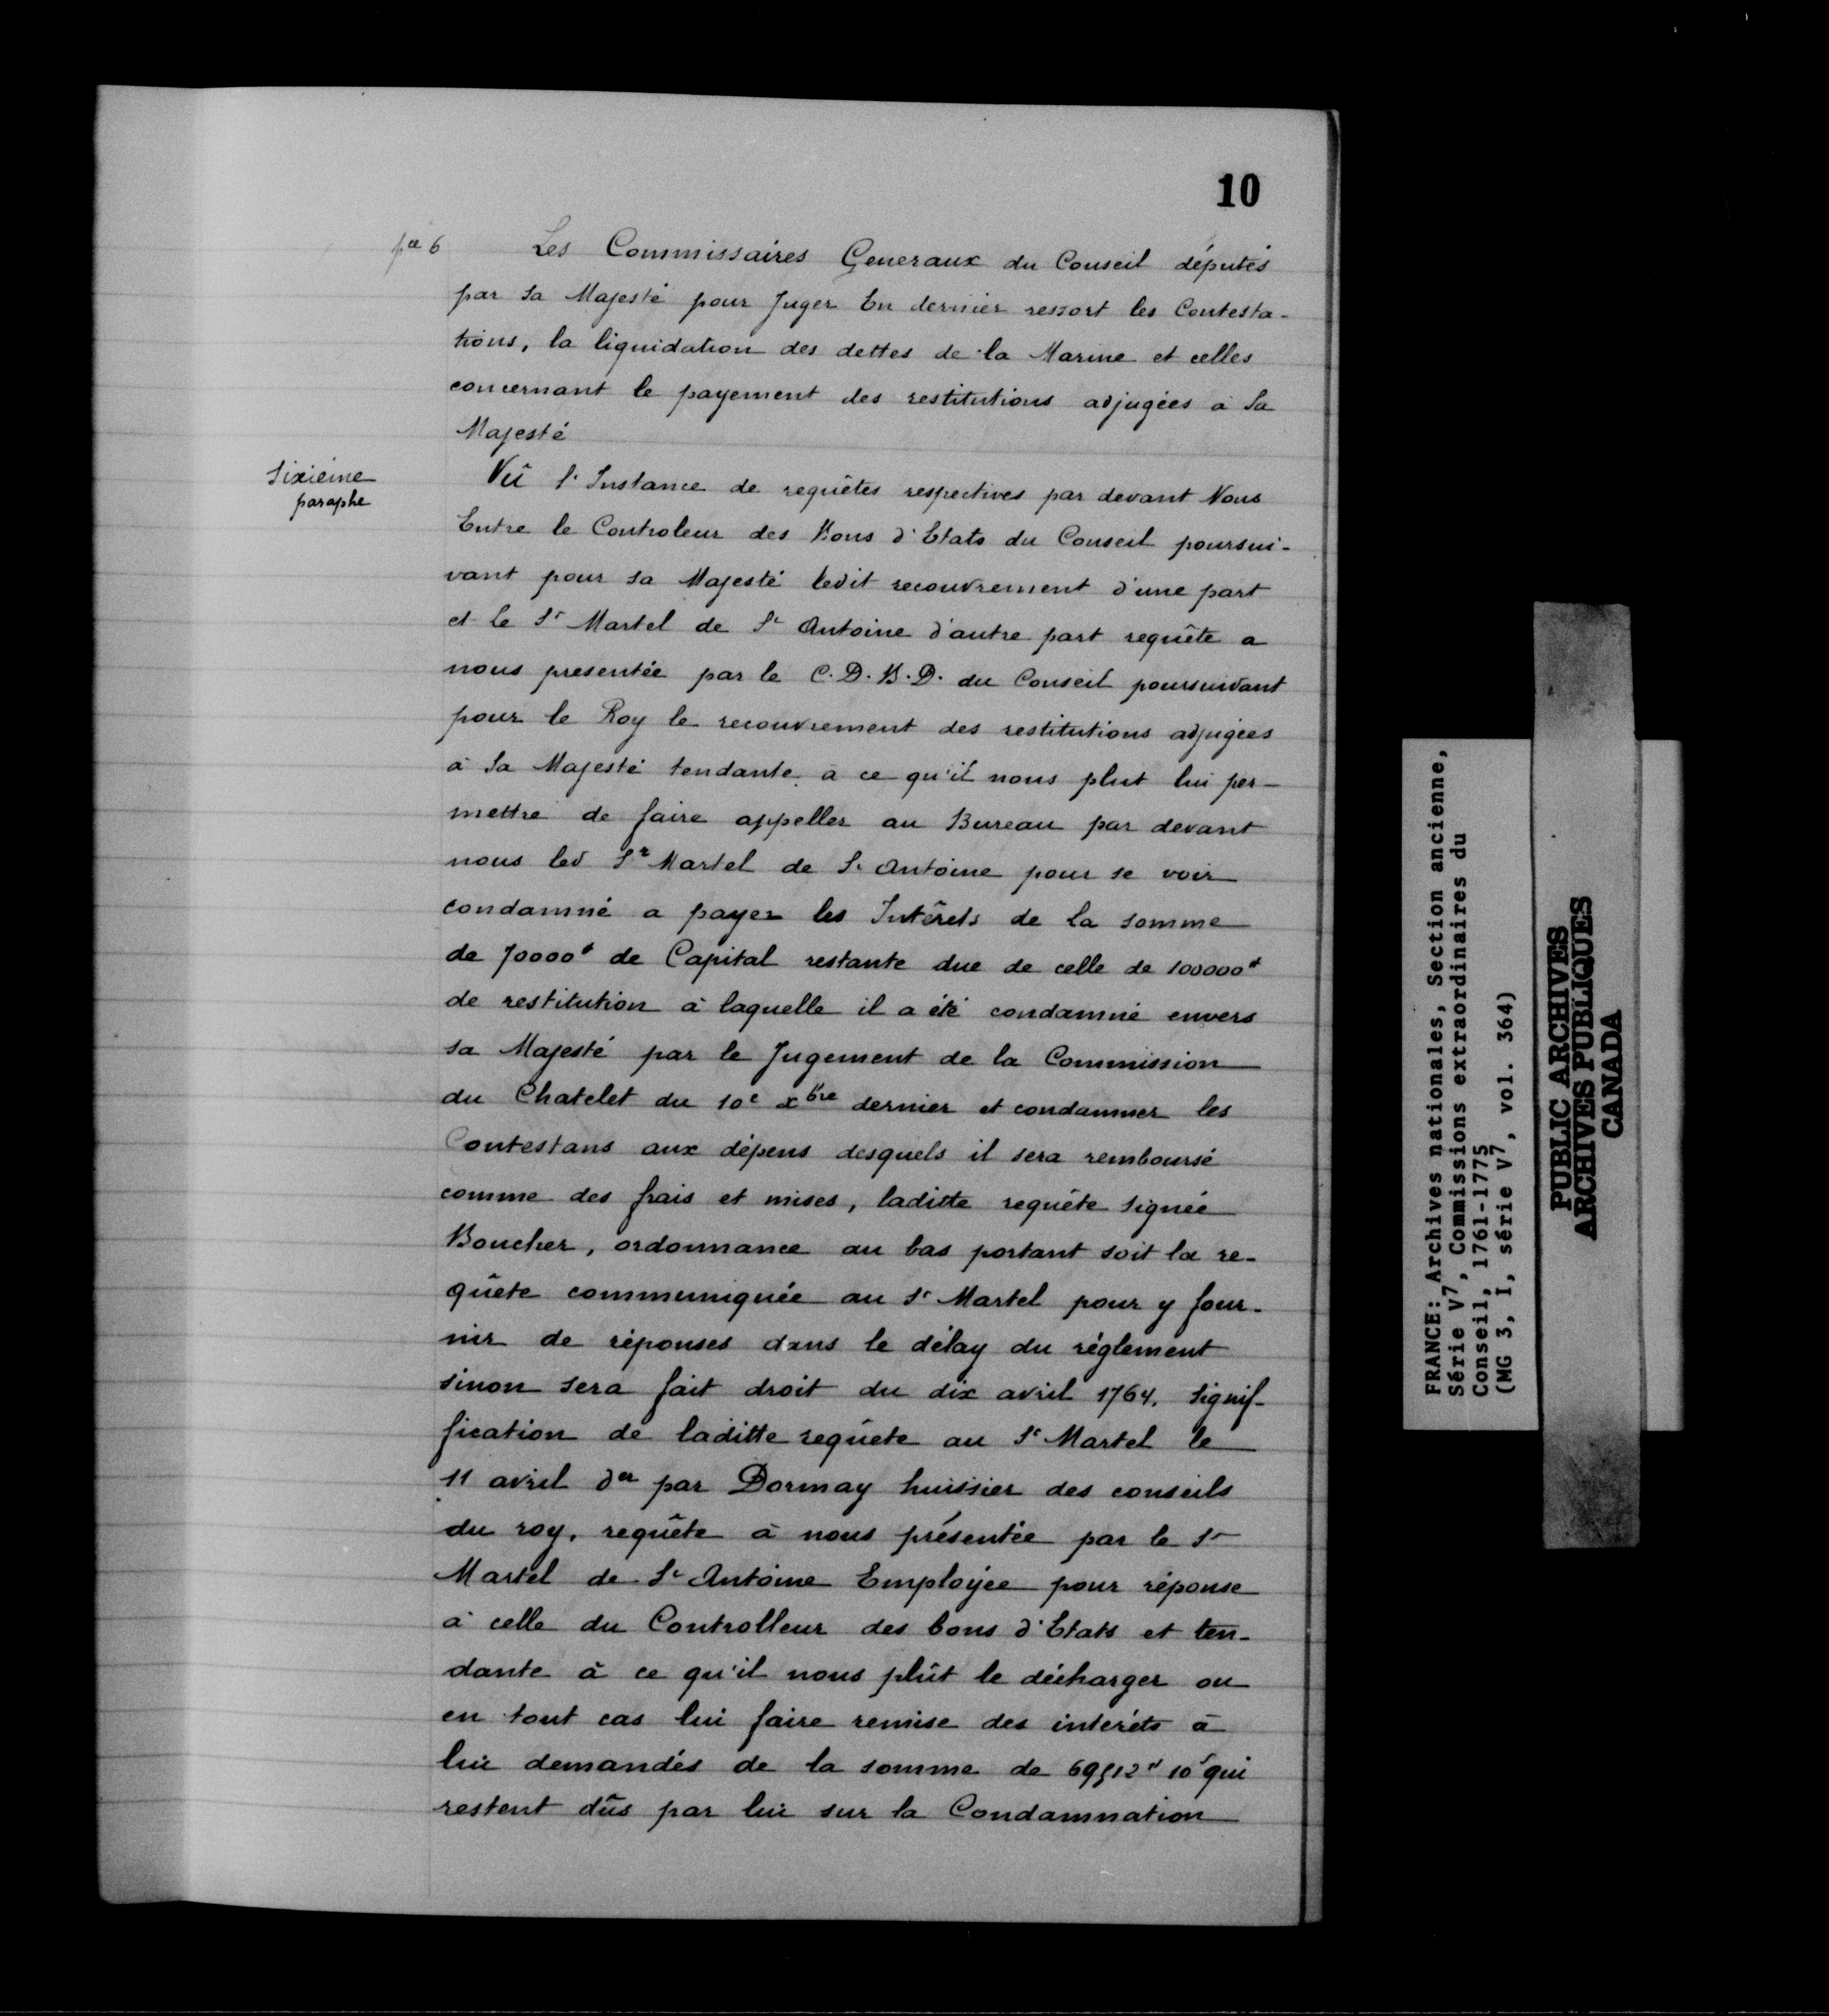 10
pce 6
Les Commissaires Generaux du Conseil députés
par Sa Majesté pour Juger En dernier ressort les Contesta-
tions, la liquidation des dettes de la Marine et celles
concernant le payement des restitutions adjugées à Sa
Majesté
Sixième
paraphe
Vû l'Instance de requêtes respectives par devant Nous
Entre le Controleur des Bons d'Etats du Conseil poursui-
vant pour sa Majesté ledit recouvrement d'une part
et le Sr Martel de St Antoine d'autre part requête a
nous presentée par le C.D.B.D. du Conseil poursuivant
pour le Roy le recouvrement des restitutions adjugées
à Sa Majesté tendante a ce qu'il nous plut lui per-
mettre de faire appeller au Bureau par devant
nous led Sr Martel de St Antoine pour se voir
condamné a payer les Intérets de la somme
de 70000# de Capital restante due de celle de 100000#
de restitution à laquelle il a été condamné envers
sa Majesté par le Jugement de la Commission
du Chatelet du 10e xbre dernier et condamner les
Contestans aux dépens desquels il sera remboursé
comme des frais et mises, laditte requête signée
Boucher, ordonnance au bas portant soit la re-
quête communiquée au Sr Martel pour y four-
nir de réponses dans le délay du réglement
sinon sera fait droit du dix avril 1764. Signif-
fication de laditte requête au Sr Martel le
11 avril der par Dormay huissier des conseils
du roy, requête à nous présentée par le Sr
Martel de St Antoine Employée pour réponse
à celle du Controlleur des bons d'Etats et ten-
dante à ce qu'il nous plût le décharger ou
en tout cas lui faire remise des interéts à
lui demandés de la somme de 69512# 10s qui
restent dûs par lui sur la Condamnation
FRANCE: Archives nationales, Section ancienne,
Série V7, Commissions extraordinaires du
Conseil, 1761-1775
(MG 3, I, série V7, vol. 364)
PUBLIC ARCHIVES
ARCHIVES PUBLIQUES
CANADA